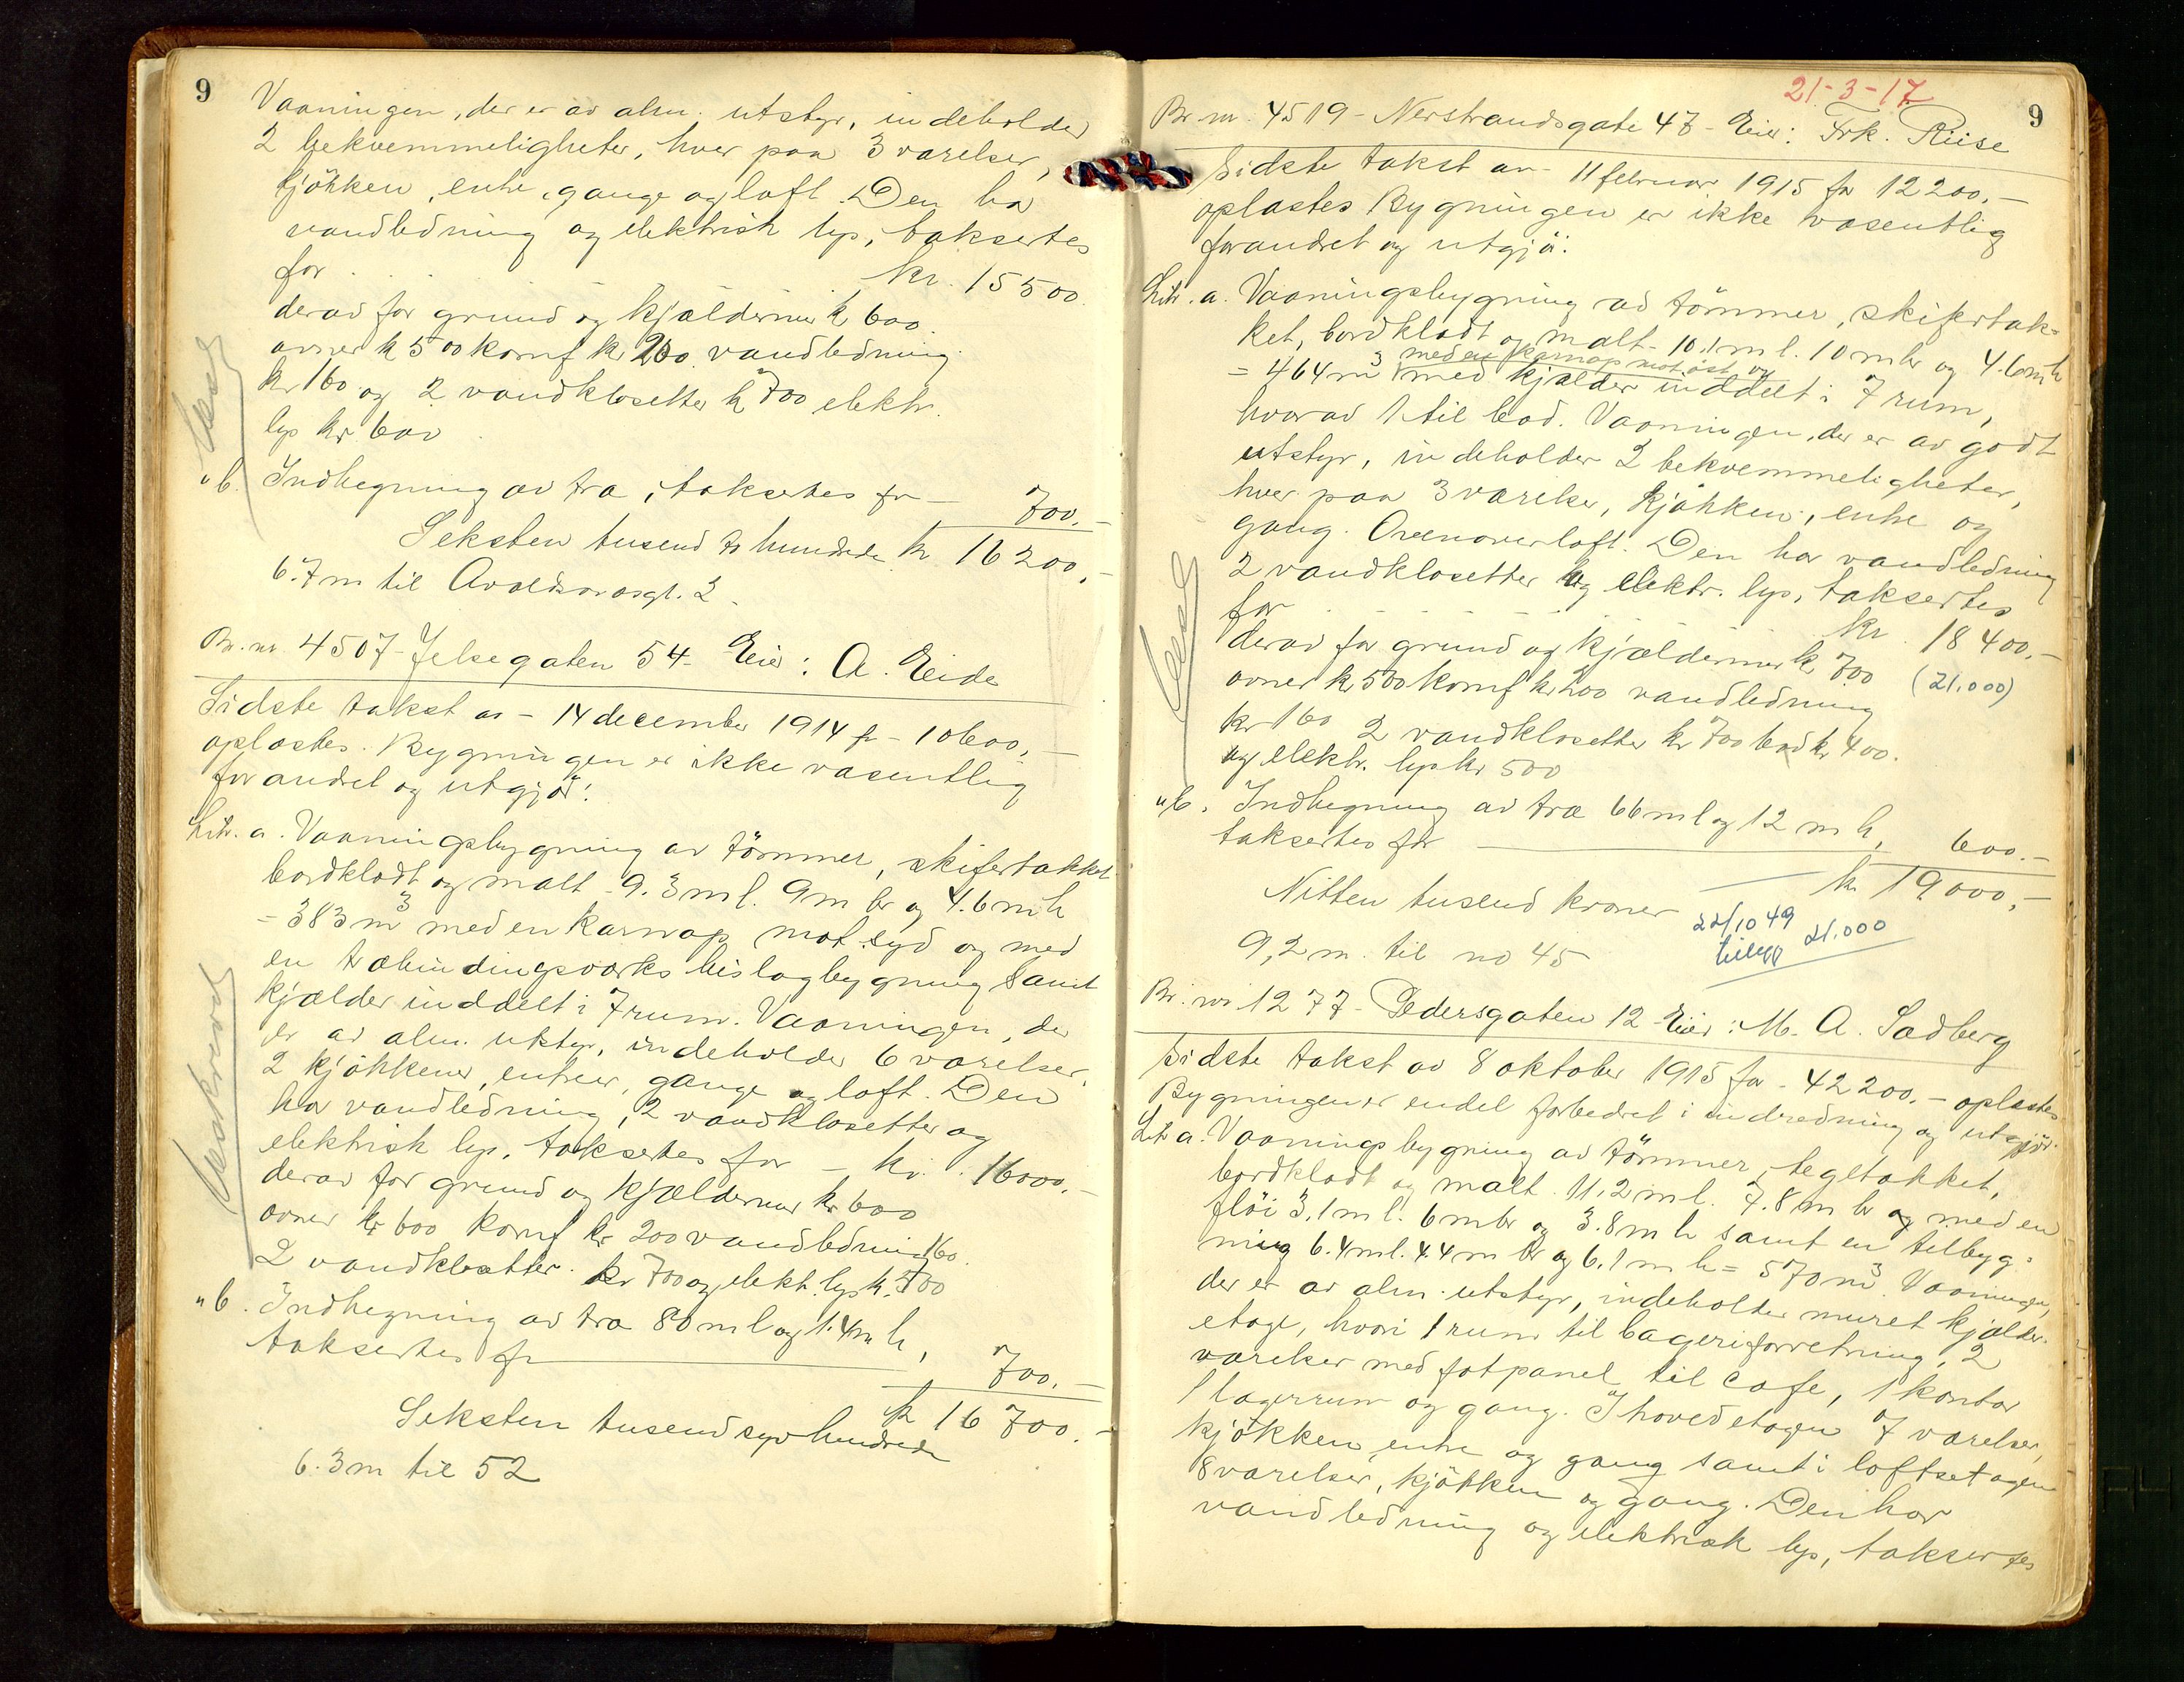 9
Vaaningen, der er av alm. utstyr, indeholder
2 bekvemmeligheter, hver paa 3 værelser,
kjökken, entre, gange og loft. Den har
vandledning og elektrisk lys, taksertes
for . . . kr. 15500.
derav for grund og kjældermur k 600.
ovner k 500 komf kr 200 vandledning
kr 160 og 2 vandklosetter k 700 elektr.
lys kr 600
"b. Indhegning av træ, taksertes for — 700.-
Seksten tusend to hundrede kr 16200,-
6.7 m til Avaldsnesgt. 2.
Br. nr. 4507 - Jelsegaten 54 - Eier: A. Eide
Sidste takst av - 14 december 1914 for - 10600,-
oplæstes. Bygningen er ikke væsentlig
forandret og utgjör:
Litr. a. Vaaningsbygning av tömmer, skifertækket
bordklædt og malt - 9.3 m l. 9 m br og 4.6 m h
= 383 m³ med en karnap mot syd og med
en træbindingsværks bislagbygning samt
kjælder inddelt i 7 rum. Vaaningen, der
er av alm. utstyr, indeholder 6 værelser,
2 kjökkener, entreer, gange og loft. Den
har vandledning, 2 vandklosetter og
elektrisk lys, taksertes for - kr. 16000.-
derav for grund og kjældermur kr 600
ovner kr 600 komf kr 200 vandledning 160.
2 vandklosetter kr 700 og elekt. lys k. 500
"b. Indhegning av træ 80 m l og 1.4 m h,
taksertes for — 700.-
k 16700.-
Seksten tusend syv hundrede
6.3 m til 52
21-3-17
9
Br. nr. 4519 - Nerstrandsgate 47 - Eier: Frk. Riise
Sidste takst av - 11 februar 1915 for 12200,-
oplæstes Bygningen er ikke væsentlig
forandret og utgjör:
Litr. a. Vaaningsbygning av tömmer, skifertæk-
ket, bordklædt og malt - 10.1 m l. 10 m br og 4.6 m h
med en karnap mot öst og
= 464 m³ med kjælder inddelt i 7 rum,
hvorav 1 til bad. Vaaningen, der er av godt
utstyr, indeholder 2 bekvemmeligheter,
hver paa 3 værelser, kjökken, entre og
gang. Ovenover loft. Den har vandledning
2 vandklosetter og elektr. lys, taksertes
for kr. 18400.-
derav for grund og kjældermur k 700 (21.000)
ovner kr 500 komf kr 200 vandledning
kr 160 2 vandklosetter kr 700 bad kr 400.
og elektr. lys kr 500
"b. Indhegning av træ 66 m l og 12 m h,
taksertes for — 600.-
kr 19000,-
Nitten tusend kroner
22/10 49
tillegg 21.000
9,2 m. til no 45
Br. nr. 1277 - Pedersgaten 12 - Eier: M. A. Sadberg
Sidste takst av 8 oktober 1915 for - 42200.- oplæstes
Bygningen er endel forbedret i indredning og utgjör:
Litr a. Vaaningsbygning av tömmer, tegltækket,
bordklædt og malt 11,2 m l. 7.8 m br og med en
flöi 3,1 m l. 6 m br og 3.8 m h samt en tilbyg-
ning 6.4 m l. 4.4 m br og 6.1 m h = 570 m³. Vaaningen,
der er av alm. utstyr, indeholder muret kjælder-
etage, hvori 1 rum til bageriforretning, 2
værelser med fotpanel til cafe, 1 kontor
1 lagerrum og gang. I hovedetagen 7 værelser,
kjökken, entre og gang samt i loftsetagen
8 værelser, kjökken og gang. Den har
vandledning og elektrisk lys, taksertes